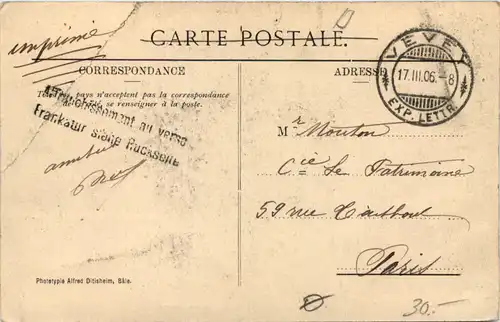 imprimé
CARTE POSTALE.
CORRESPONDANCE
ADRESSE
VEVEY
17.III.06.-8
EXP. LETTR.
pays n'acceptent pas la correspondance
se renseigner à la poste.
Affranchissement au verso
Frankatur siehe Rückseite
Mr Mouton
Cie Le Patrimoine
59 rue Taitbout
Paris
Phototypie Alfred Ditisheim, Bâle.
30.-